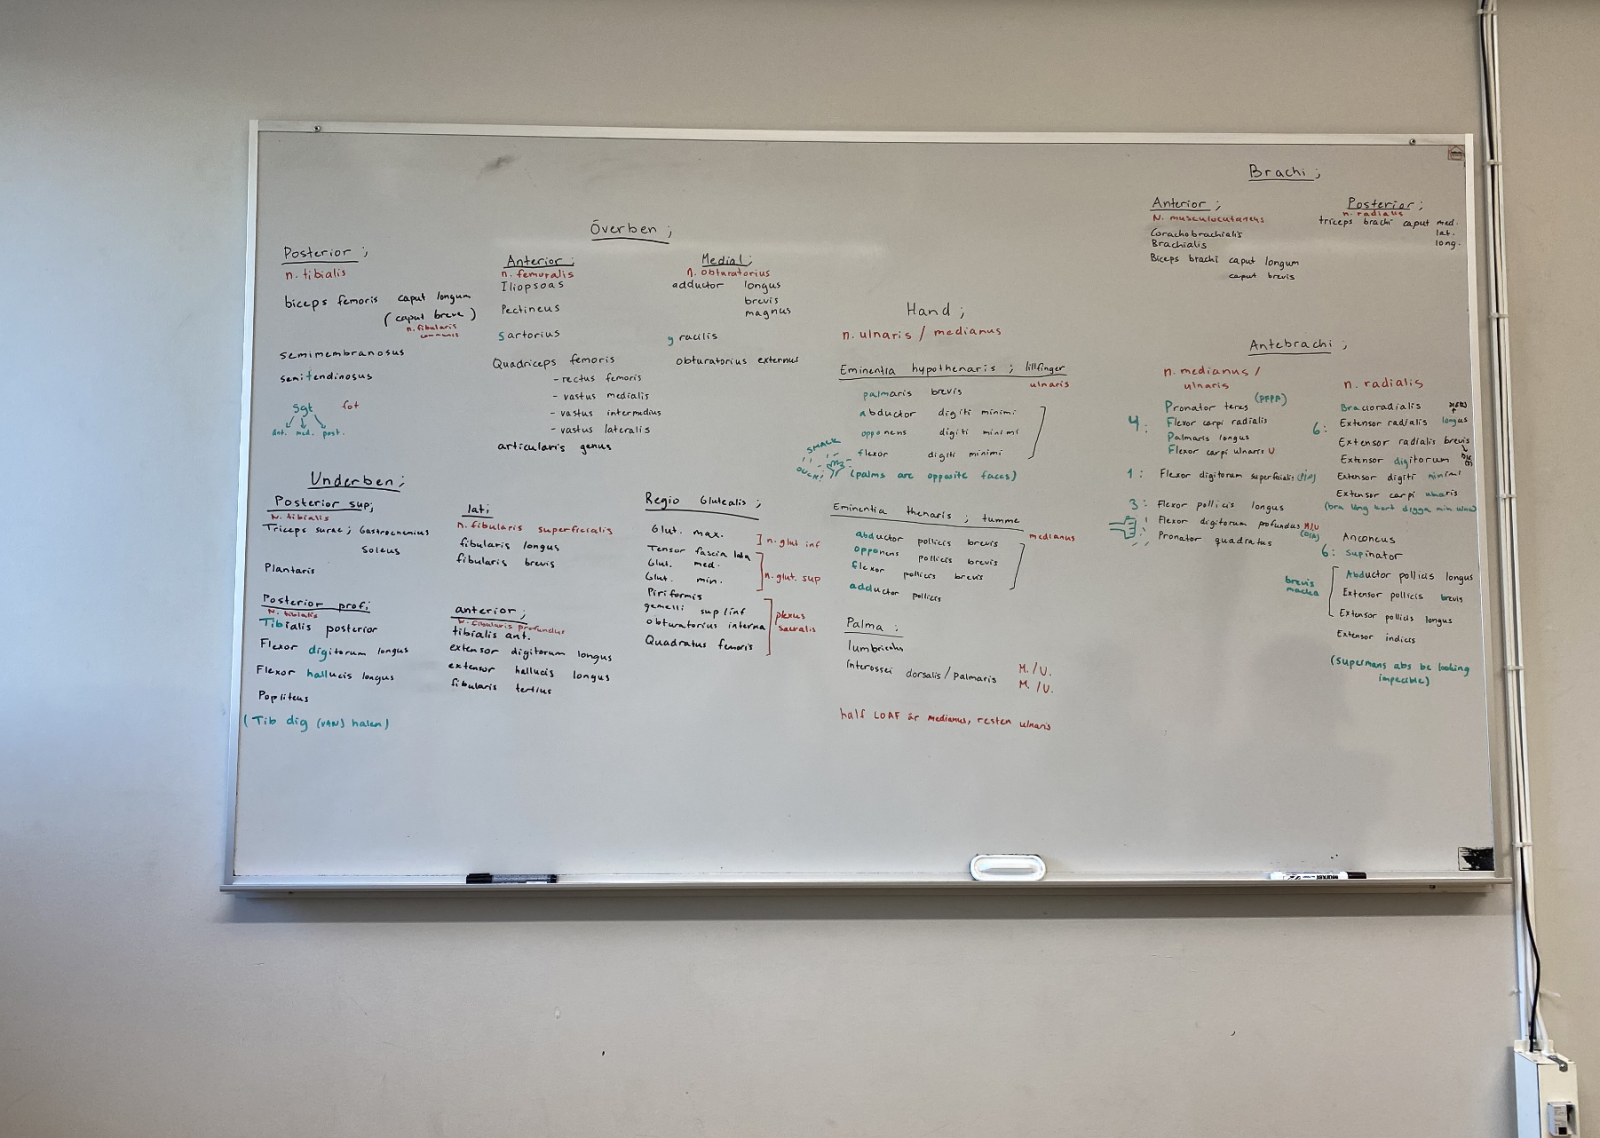 Överben ;
Posterior ;
n. tibialis
biceps femoris caput longum
(caput breve)
n. fibularis
communis
semimembranosus
semitendinosus
Sgt fot
med. post.
Anterior ;
n. femoralis
Iliopsoas
Pectineus
Sartorius
Quadriceps femoris
- rectus femoris
- vastus medialis
- vastus intermedius
- vastus lateralis
articularis genus
Medial ;
n. obturatorius
adductor longus
brevis
magnus
gracilis
obturatorius externus
Underben ;
Posterior sup;
N. tibialis
Triceps surae ; Gastrocnemius
Soleus
Plantaris
Posterior prof;
N. tibialis
Tibialis posterior
Flexor digitorum longus
Flexor hallucis longus
Popliteus
(Tib dig (VAN) halen)
lat;
n. fibularis superficialis
fibularis longus
fibularis brevis
anterior ;
N. fibularis profundus
tibialis ant.
extensor digitorum longus
extensor hallucis longus
fibularis tertius
Regio Glutealis ;
Glut. max.
n. glut inf
Tensor fascia lata
Glut. med.
Glut. min.
n. glut. sup
Piriformis
gemelli sup/inf
obturatorius interna
Quadratus femoris
plexus
sacralis
Hand ;
n. ulnaris / medianus
Eminentia hypothenaris ; lillfinger
ulnaris
palmaris brevis
abductor digiti minimi
opponens digiti minimi
flexor digiti minimi
SMACK
OUCH!
(palms are opposite faces)
Eminentia thenaris ; tumme
abductor pollicis brevis
opponens pollicis brevis
flexor pollicis brevis
medianus
adductor pollicis
Palma ;
lumbricals
interossei dorsalis/palmaris
M./U.
M./U.
half LOAF är medianus, resten ulnaris
Brachi ;
Anterior ;
N. musculocutaneus
Corachobrachialis
Brachialis
Biceps brachi caput longum
caput brevis
Posterior ;
n. radialis
triceps brachi caput med.
lat.
long.
Antebrachi ;
n. medianus /
ulnaris
(PFPF)
4: Pronator teres
Flexor carpi radialis
Palmaris longus
Flexor carpi ulnaris U
1: Flexor digitorum superficialis
3: Flexor pollicis longus
Flexor digitorum profundus M/U
Pronator quadratus
n. radialis
6: Bracioradialis
Extensor radialis longus
Extensor radialis brevis
Extensor digitorum
Extensor digiti minimi
Extensor carpi ulnaris
(bra lång kort digga min ulna)
6: Anconeus
Supinator
Abductor pollicis longus
Extensor pollicis brevis
Extensor pollicis longus
brevis
macka
Extensor indicis
(Supermans abs be looking
impecible)